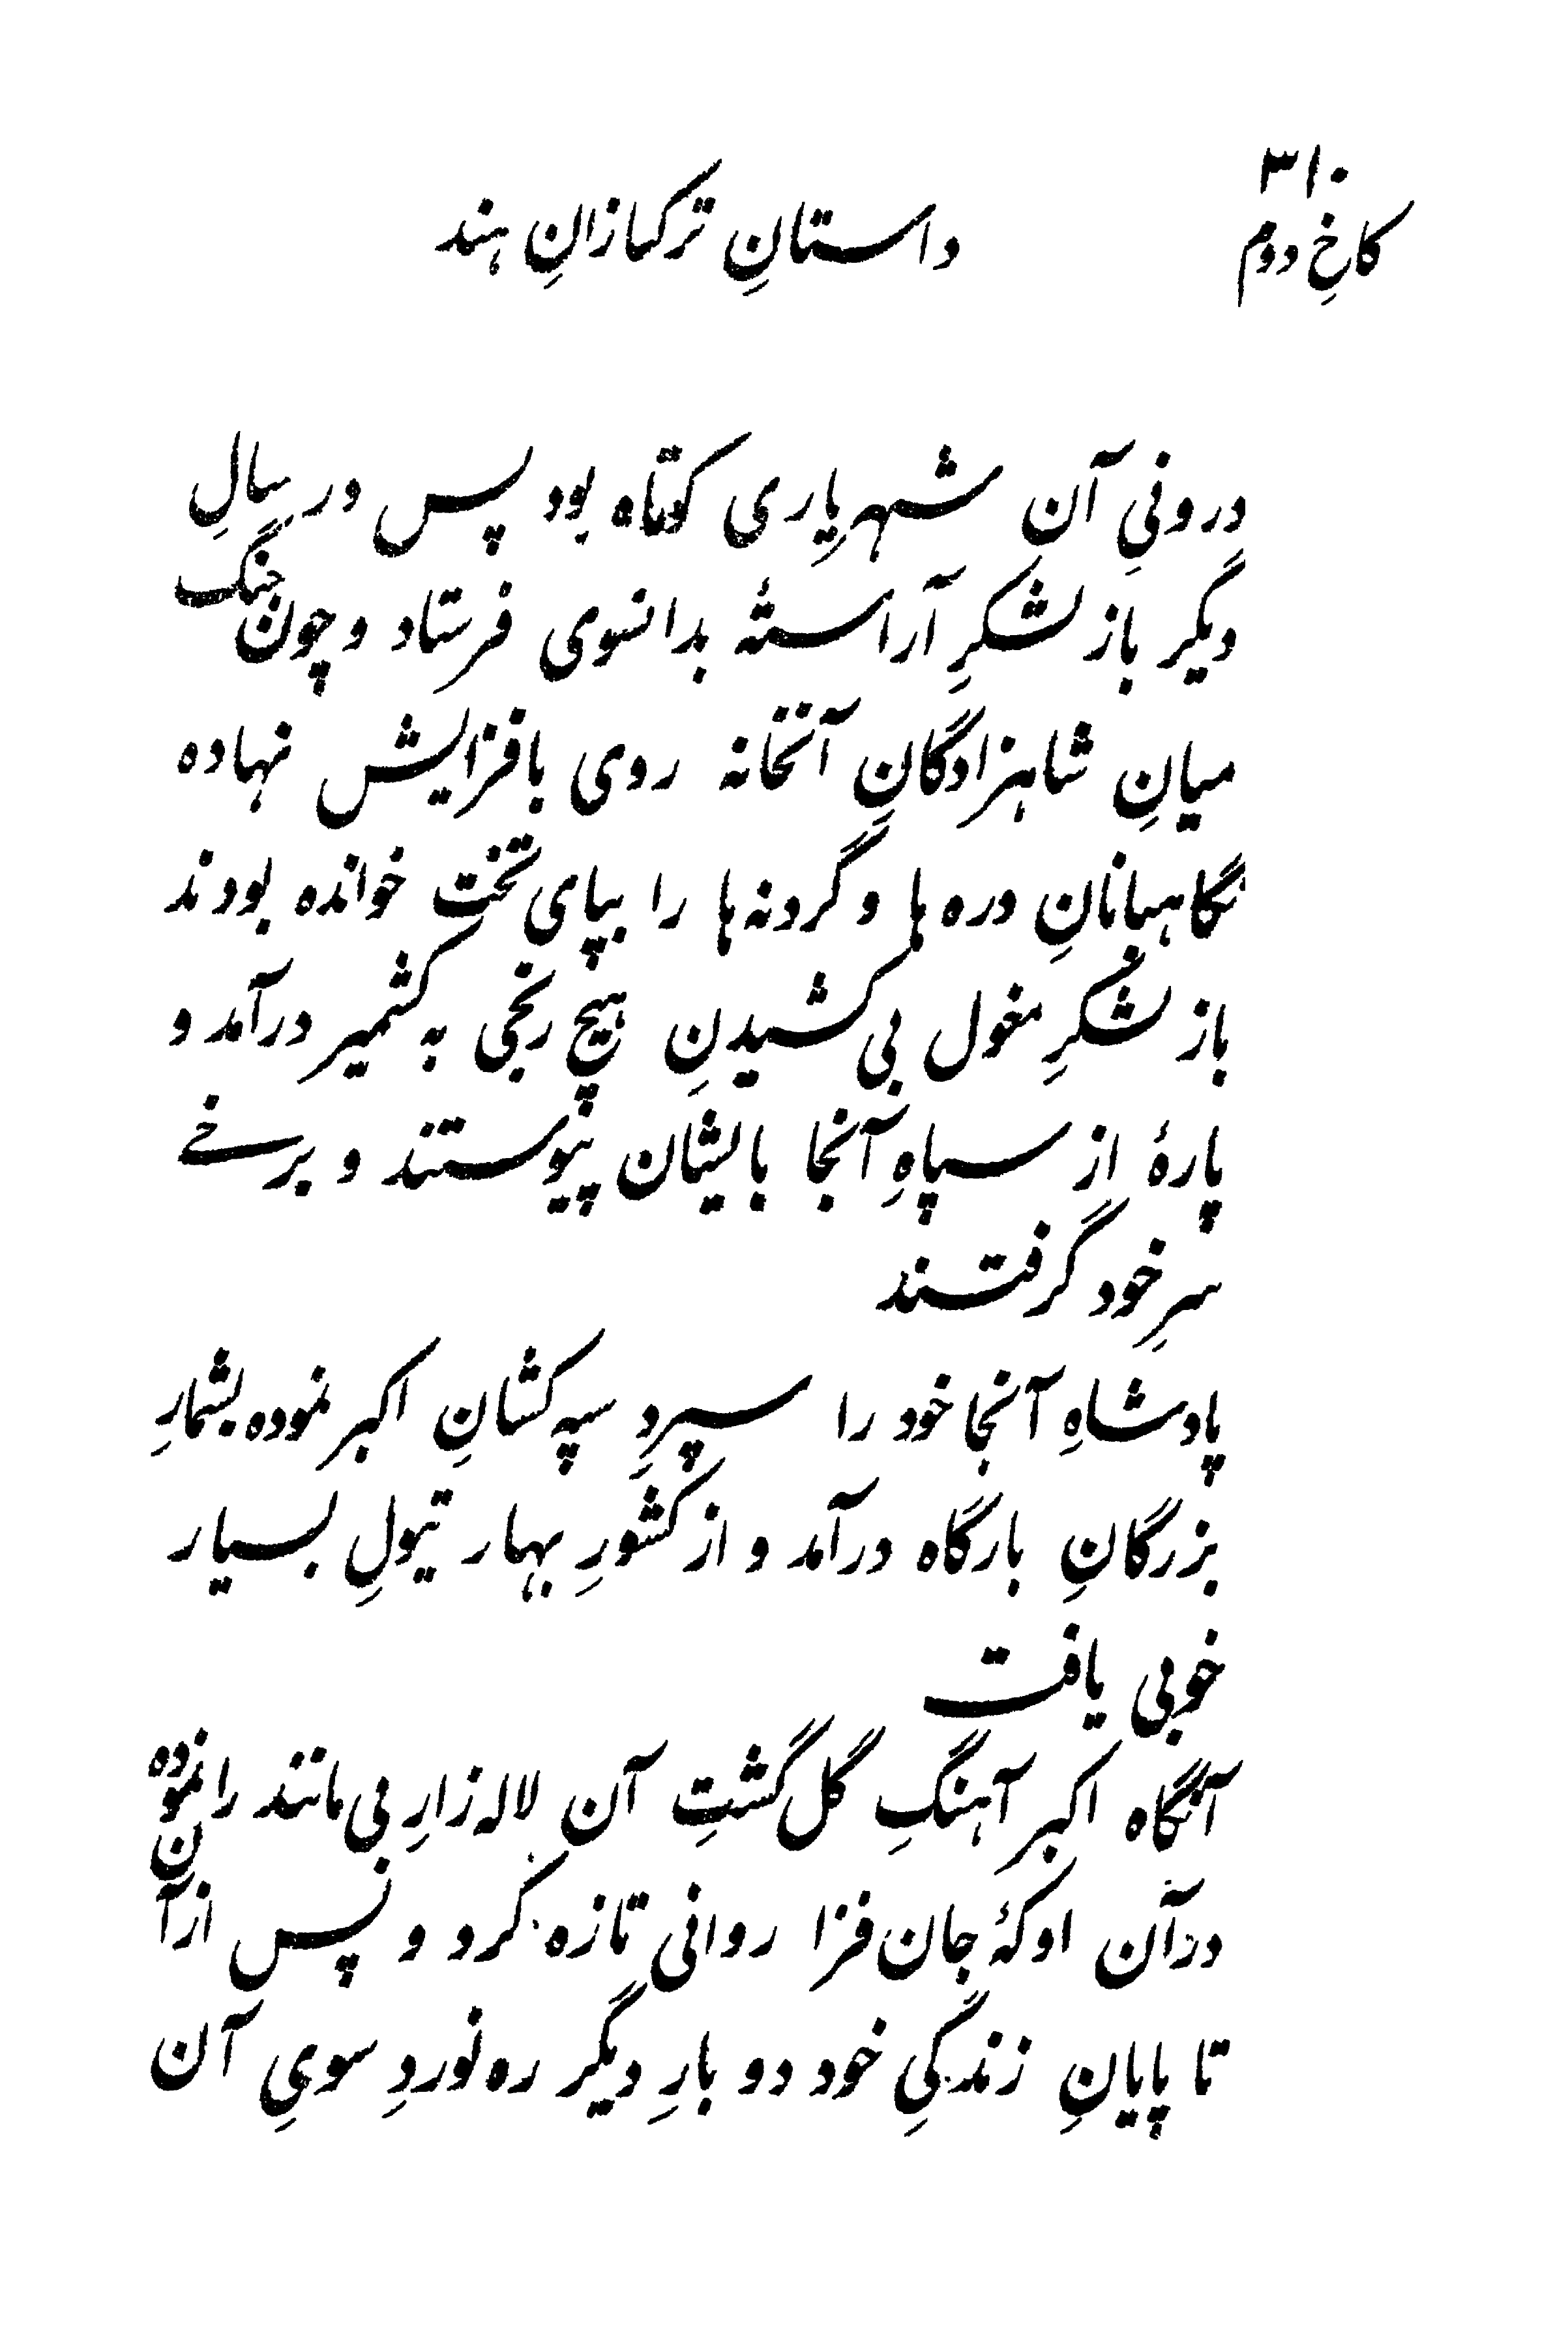 ۳۱۰
کاخِ دوم
داستانِ ترکتازانِ هند
درونیِ آن شهریاری کوتاه بود پس در سالِ
دیگر باز لشکرِ آراستهٔ بدانسوی فرستاد و چون جنگ
میانِ شاهزادگانِ آنخانه روی بافزایش نهاده
نگاهبانانِ دره ها و گردنه ها را بپای تخت خوانده بودند
باز لشکرِ مغول بی کشیدنِ هیچ رنجی به کشمیر درآمد و
پارهٔ از سپاهِ آنجا بایشان پیوستند و برخے
سرِ خود گرفتند
پادشاهِ آنجا خود را سپردِ سپه کشانِ اکبر نموده بشمارِ
بزرگانِ بارگاه درآمد و از کشورِ بهار تیولِ بسیار
خوبی یافت
آنگاه اکبر آهنگِ گل گشتِ آن لاله زارِ بی مانند را نموده
درآن اوکهٔ جان فزا روانی تازه کرد و پس ازآن
تا پایانِ زندگیِ خود دو بارِ دیگر ره نوردِ سویِ آن